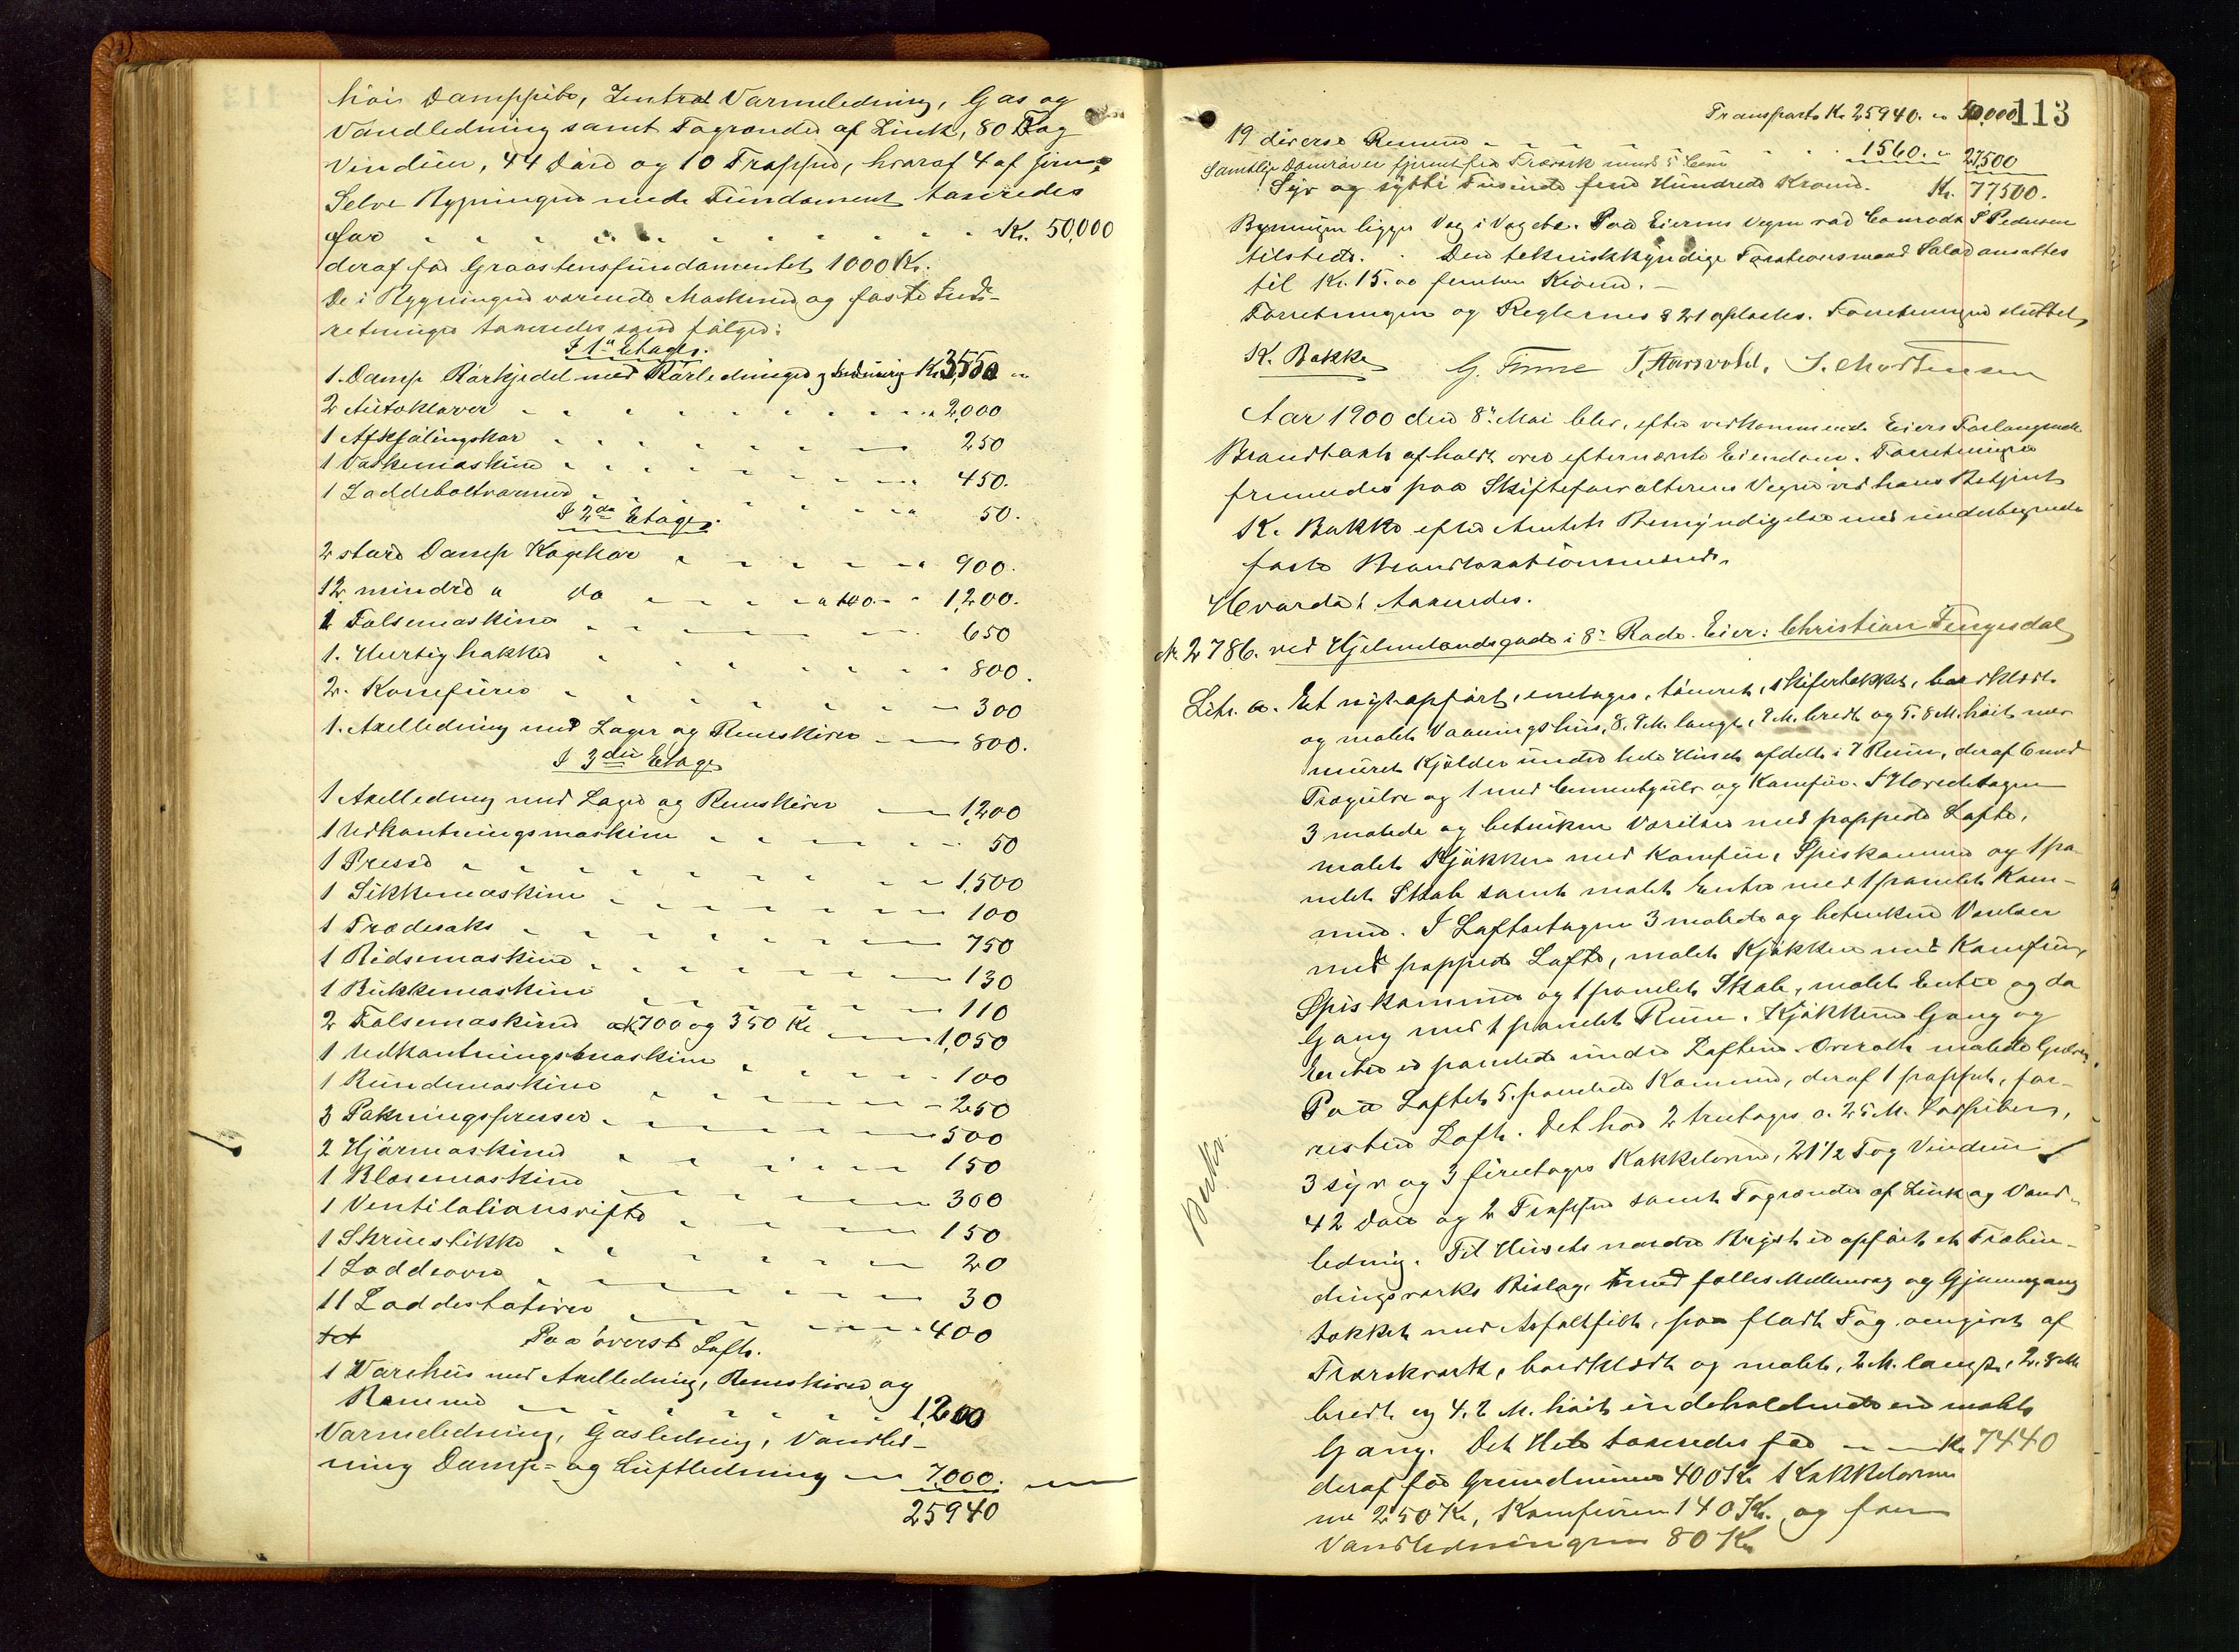 høi Damppibe, Zentral Varmeledning, Gas og
Vandledning samt Tagrender af Zink, 80 Fag
Vinduer, 44 Døre og 10 Trapper, hvoraf 4 af Jern.
Selve Bygningen med Fundament taxeredes
for - - - - - - - - - Kr. 50,000
deraf for Graastensfundamentet 1000 Kr.
De i Bygningen værende Maskiner og faste Ind-
retninger taxeredes som følger:
I 1ste Etage.
1. Damp Rørkjedel med Rørledninger og Indmuring Kr. 3,550 "
2 Autoklaver - - - - - - - " 2,000
1 Afkjølingskar - - - - - - - 250
1 Vaskemaskine - - - - - - - 450.
1 Loddeboltvarmer - - - - - 50.
I 2den Etage.
2 store Damp Kogekar - - - - - 900.
12 mindre " do - - - a 100 - - 1,200.
1 Falsemaskine - - - - - 650
1. Hurtighakke - - - - - - 800.
2. Komfurer - - - - - - 300
1. Axelledning med Lager og Remskiver - - 800.
I 3die Etage
1 Axelledning med Lager og Remskiver - 1,200
1 Udkantningsmaskine - - - - - 50
1 Presse - - - - - - - 1,500
1 Sikkemaskine - - - - - - 100
1 Trædesaks - - - - - - 750
1 Ridsemaskine - - - - - - 130
1 Bukkemaskine - - - - - 110
2 Falsemaskiner a Kr 700 og 350 Kr - - 1,050
1 Udkantningsmaskine - - - - 100
1 Rundemaskine - - - - - 250
3 Pakningspresser - - - - - 500
2 Hjørnemaskiner - - - - - 150
1 Blæsemaskine - - - - - 300
1 Ventilationsvifte - - - - 150
1 Skruestikke - - - - - 20
1 Loddeovn - - - - - 30
11 Loddestativer - - - - 400
Paa øverste Loft.
1 Vareheis med Axelledning, Remskiver og
Remmer - - - - - - 1,200
Varmeledning, Gasledning, Vandled-
ning Damp- og Luftledning - 7,000.
25940
113
Transport Kr. 25940. " 50,000
19 diverse Remmer - - - - - 1560. " 27,500
Samtlige Damrør er fjernet fra Træværk mindst 5 Ctm
Syv og sytti Tusinde fem Hundrede Kroner. Kr. 77,500.
Bygningen ligger Væg i Væg etc. Paa Eierens Vegne var Conrad S Pedersen
tilstede. Den tekniskkyndige Taxationsmand Salær ansattes
til Kr. 15.00 femten Kroner. -
Forretningen og Reglernes § 21 oplæstes. Forretningen sluttet,
K. Bakke G. Finne T. Aarsvold. J. Mortensen
Aar 1900 den 8de Mai blev, efter vedkommende Eiers Forlangende
Brandtaxt afholdt over efternævnte Eiendom. Forretningen
fremmedes paa Skifteforvalterens Vegne ved hans Betjent
K. Bakke efter Amtets Bemyndigelse med undertegnede
faste Brandtaxationsmænd.
Hvorda! taxeredes.
No 2786. ved Hjelmelandsgade i 8de Rode. Eier: Christian Tengesdal
Litr. a. Et nyt opført, enetages, tømret, skifertækket, bordklædt
og malet Vaaningshus, 8.4 M. langt, 7 M. bredt og 5.8 M. høit med
muret Kjelder under hele Huset afdelt i 7 Rum, deraf 6 med
Trægulve og 1 med Cementgulv og Komfur. I Hovedetagen
3 malede og betrukne Værelser med pappede Lofte,
malet Kjøkken med Komfur, Spiskammer og 1 pa-
nelet Skab samt malet Entre med 1 panelet Kam-
mer. I Loftsetagen 3 malede og betrukne Værelser
med pappede Lofte, malet Kjøkken med Komfur,
Spiskammer og 1 panelet Skab, malet Entre og do
Gang med 1 panelet Rum. Kjøkkener Gang og
Entre er panelede under Loftene. Overalt malede Gulve.
Paa Loftet 5 panelede Kammer, deraf 1 pappet, for-
resten Loft. Det har 2 tretages a. 25 M. Rørpiber,
3 syv og 3 firetages Kakkelovne, 21 1/2 Fag Vinduer
42 Døre og 2 Trapper samt Tagrender af Zink og Vand-
ledning. Til Husets nordre Bryst er opført et Trebin-
dingsværks Bislag med fælles Mellemvæg og Gjennemgang
tækket med Asfaltfilt, paa fladt Tag omgivet af
Træværk, bordklædt og malet, 2 M. langt, 2.8 M
bredt og 4.2 M. høit indeholdende en malet
Gang. Det Hele taxeredes for - - Kr 7440
deraf for Grundmuren 400 Kr Kakkelovne
ne 250 Kr, Komfuren 140 Kr. og for
Vandledningen 80 Kr.